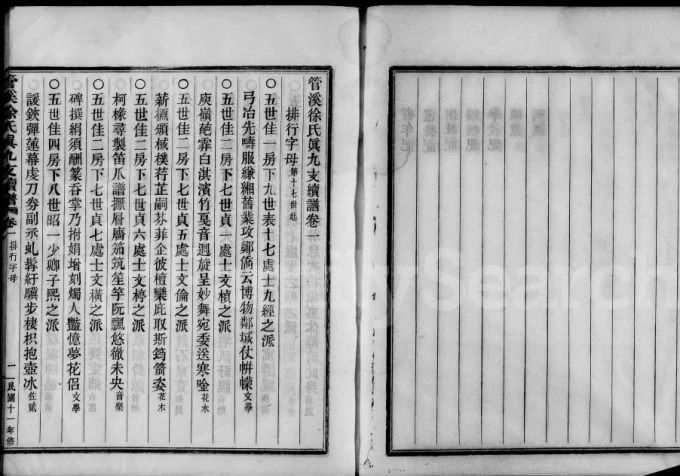 管溪徐氏真九支續譜卷一
排行字母 第十七世起
〇五世佳一房下九世表十七處士九經之派
弓冶先疇服 緗舊業攻鄭僑云博物鄰域仗帡幪 文學
〇五世佳二房下七世貞一處士文楨之派
庾嶺葩霏白淇濱竹戛音迴旋呈妙舞宛委送寒唫 花木
〇五世佳二房下七世貞五處士文倫之派
薪 頒棫樸荇芷嗣芬菲企彼檀欒庇取斯筠箭姿 花木
〇五世佳二房下七世貞六處士文樗之派
柯椽尋製笛爪譜擫 箎笳筑笙竽阮飄悠徹未央 音樂
〇五世佳二房下七世貞七處士文橫之派
碑撰絹須酬篆吞掌乃拊娟增刻燭人豔憶夢花侶 文學
〇五世佳四房下八世昭一少卿子熙之派
諼鋏彈蓮幕虔刀劵副丞虬髯紆驥步棲枳抱壺冰 佐貳
管溪徐氏真九支續譜 卷一 排行字母
一 民國十一年修